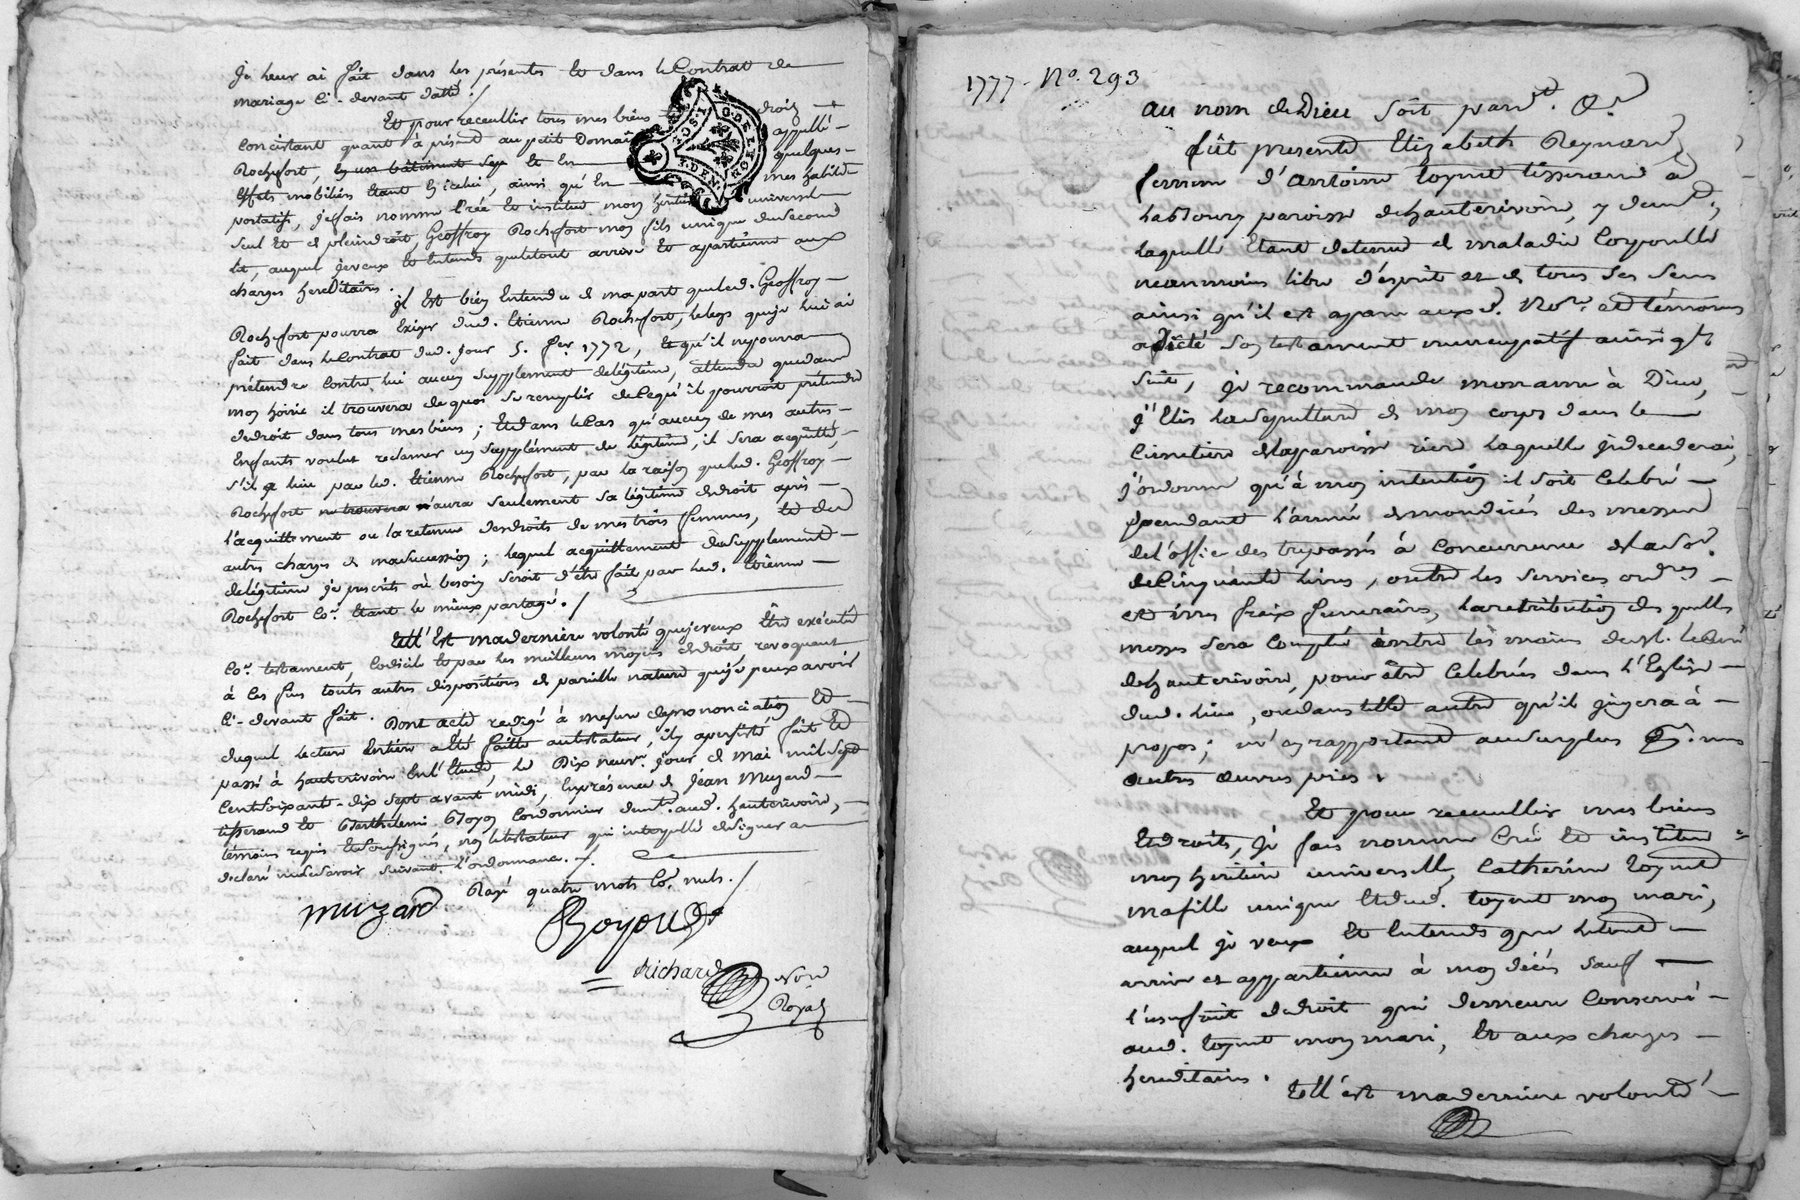 je leur ai fait dans les présents et dans le Contrat de
mariage ci-devant datté./
Et pour receuillir tous mes biens droits
Concistant quant à présent au petit Domaine appellé
Rochefort, et un bâtiment sep et en quelques
Effets mobiliérs étant en icelui, ainsi qu'en mes habits
portatifs, je fais nomme Crée et institue mon héritier universel
seul et de pleindroit, Geoffroy Rochefort mon fils unique du second
lit, auquel je veux et entends que letout arrive et apartiênne aux
charges hereditaires.
Il est bien entendu de ma part que led. Geoffroy
Rochefort pourra exiger dud. Etienne Rochefort, le legs que je lui ai
fait dans le Contrat dud. jour 5. fer. 1772, et qu'il ne pourra
prétendre contre lui aucun supplement de légitime, attendu que dans
mon hoirie il trouvera de quoi se remplir de ce qu'il pourroit prétendre
de droit dans tous mes biens; et dans le cas qu'aucun de mes autres
Enfants voulut reclamer un supplément de légitime, il sera acquitté,
s'il a lieu par led. Etienne Rochefort, par la raison que led. Geoffroy
Rochefort ne trouvera n'aura seulement sa légitime de droit après
l'acquittement ou la retenue des droits de mes trois femmes, et des
autres charges de ma succession; lequel acquittement du supplement
de légitime je prescrits où besoin seroit d'être fait par led. Etienne
Rochefort Co. étant le mieux partagé./
Tell'est ma dernière volonté que je veux être exécuté
Co. testament, Codicile et par les meilleurs moyens de droit, revoquant
à ces fins touts autres dispositions de pareille nature que je peux avoir
Ci-devant fait. Dont acte redigé à mesure de prononciation et
duquel lecture entière a été faitte au testateur, il y a persisté fait et
passé à hauterivoire en l'Etude, le Dix neuv. jour de mai mil sept
Cent soixante-dix sept avant midi, en présence de Jean Muzard
tisserand et Barthelemi Boyon Cordonnier demt. aud. hauterivoire,
témoins requis et soussignés, non le testateur qui interpellé de signer a
déclaré ne le savoir, suivant l'ordonnance./.
Rayé quatre mots Co. nuls./
muzard
Boyon
Richard Nore
Royal
1777. No. 293
au nom de Dieu soit pardt. &.
fût presente Elizabeth Reynard
femme d'antoine Coynet tisserand à
la Boury paroisse de hauterivoire, y demt.,
laquelle étant detenue de maladie Corporelle
neanmoins libre d'esprit et de tous ses sens
ainsi qu'il est aparu aux d. Nore. et témoins
a dicté son testament nuncupatif ainsi qt
suit, je recommande mon ame à Dieu,
j'Elis la sepulture de mon corps dans le
Cimetiere de la paroisse riere laquelle je decederai,
j'ordonne qu'à mon intention il soit celebré
pendant l'année de mon décés des messes
de l'office des trepassés à concurrence de la so.
de Cinquante livres, outre les services ordres.
et mes fraix funeraires, la retribution des quelles
messes sera comptée entre les mains de M. le Curé
de hauterivoire, pour être celebrées dans l'Eglise
dud. lieu, ou dans telle autre qu'il jugera à
propos; m'en rapportant au surplus mes
autres œuvres pies.
Et pour receuillir mes biens
et droits, je fais nomme Crée et institue
mon heritiere universelle, Catherine Coynet
ma fille unique et dud. Coynet mon mari,
auquel je veux et entends que letout
arrive et appartienne à mon décés sauf
l'usufruit de droit qui demeure conservé
aud. Coynet mon mari, et aux charges
hereditaires.
Tell'est ma derniere volonté